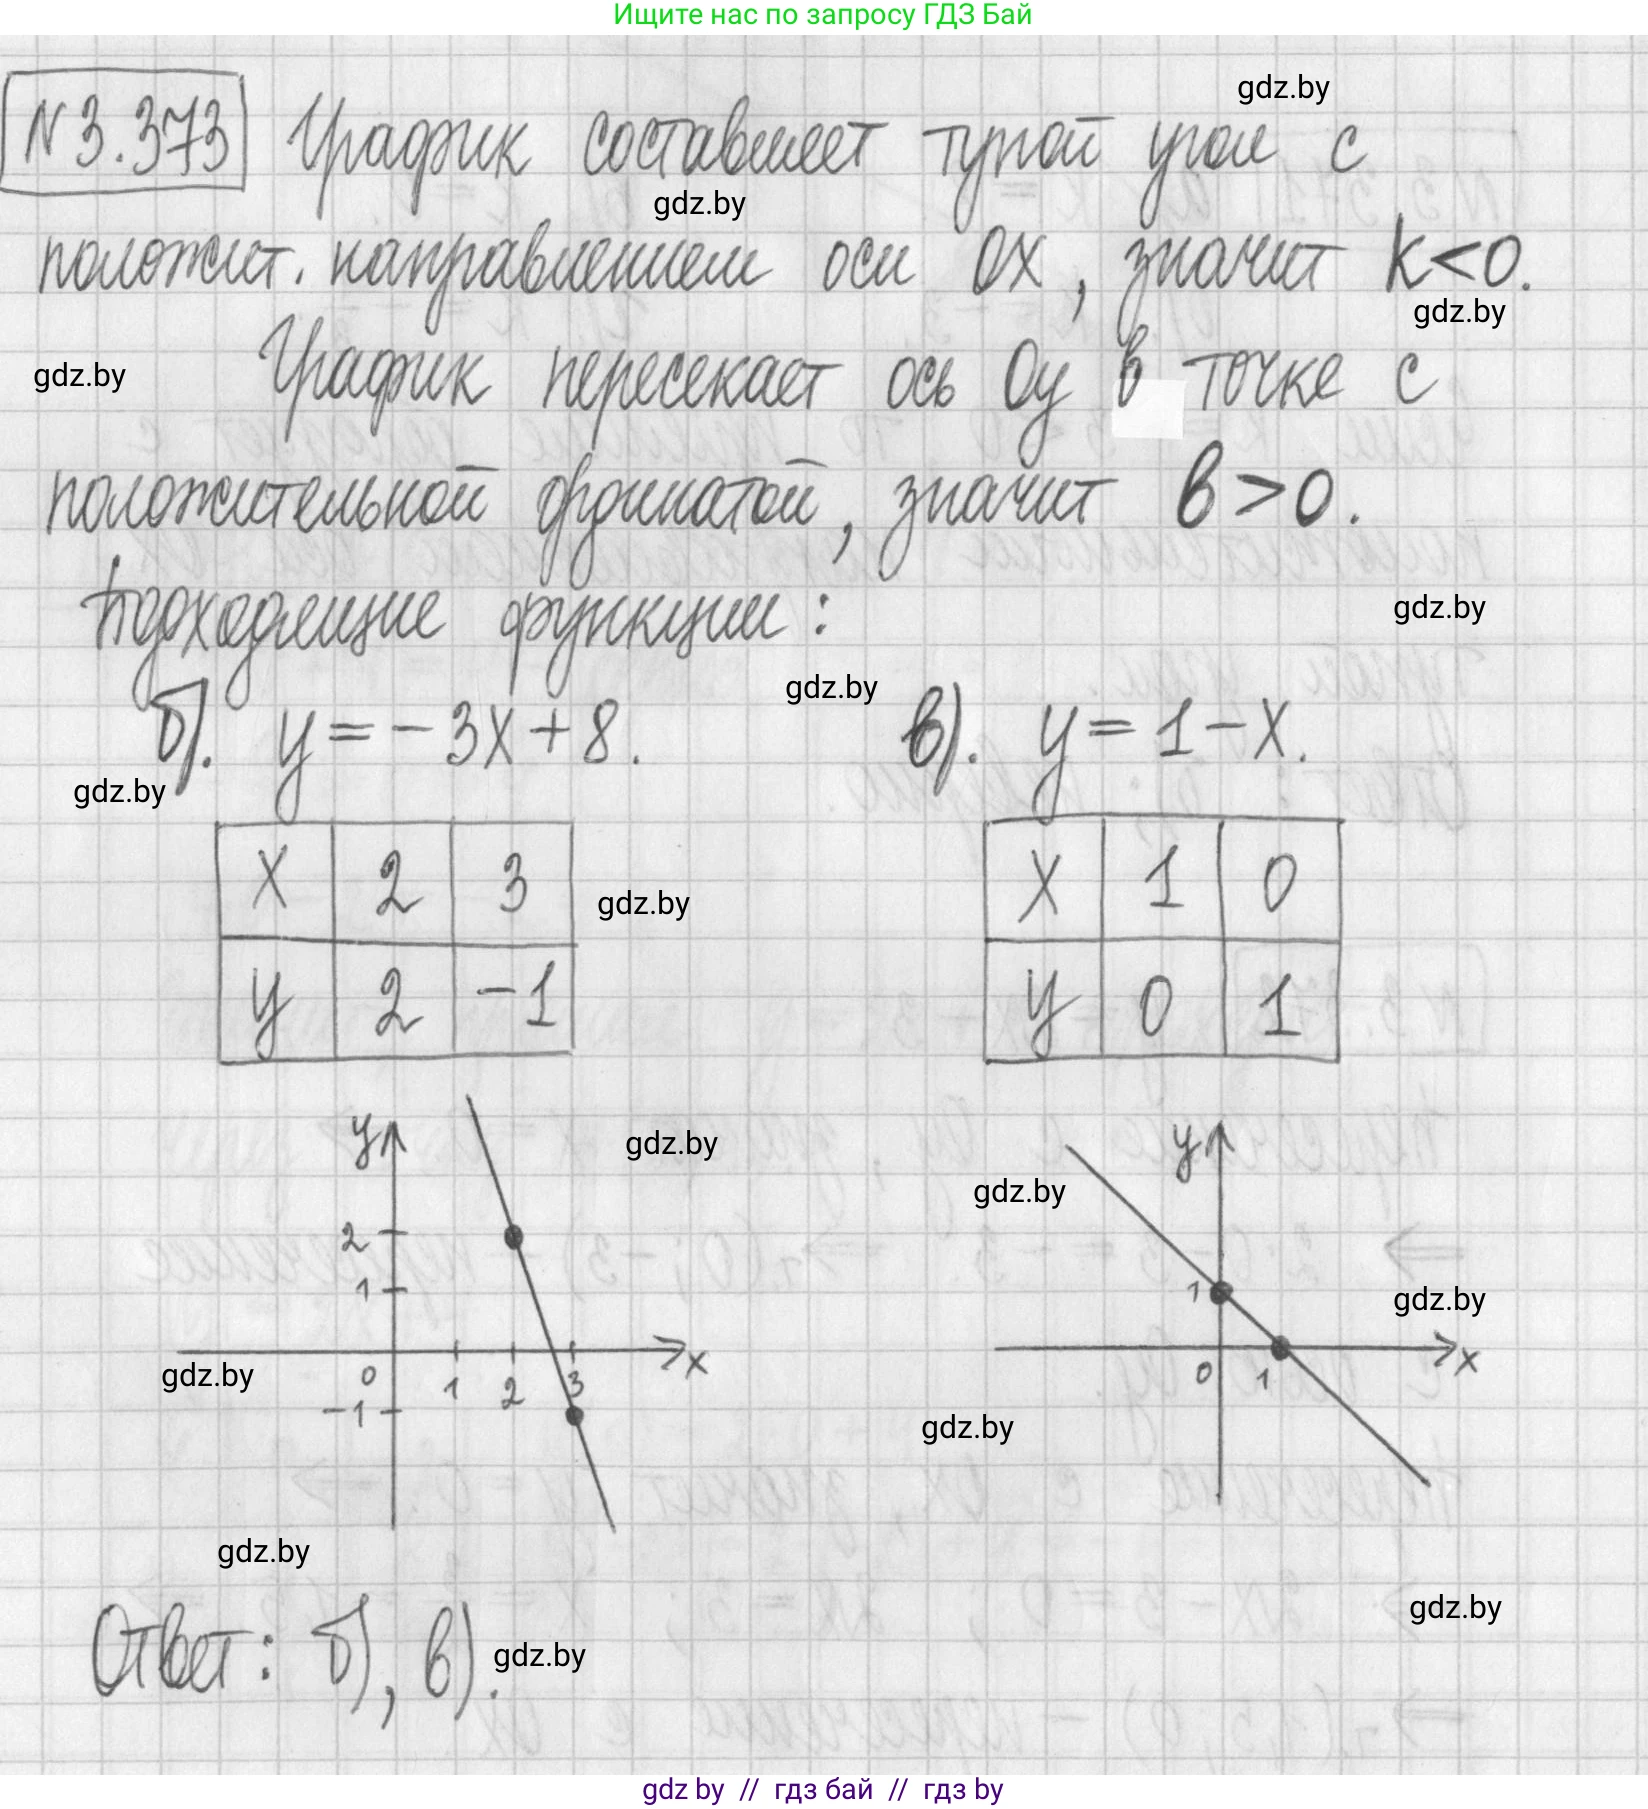 Ищите нас по запросу ГДЗ Бай
gdz.by
N3.373 График составляет тупой угол с
gdz.by
положит. направлением оси Ox, значит k<0.
gdz.by
График пересекает ось Oy в точке с
gdz.by
положительной ординатой, значит b>0.
Подходящие функции:
gdz.by
gdz.by
б). y = -3x + 8. в). y = 1 - x.
gdz.by
x 2 3
y 2 -1
gdz.by
x 1 0
y 0 1
gdz.by
y
2
1
0 1 2 3 x
-1
gdz.by
gdz.by
y
1
0 1 x
gdz.by
gdz.by
gdz.by
gdz.by
Ответ: б), в).
gdz.by
gdz by // гдз бай // гдз by